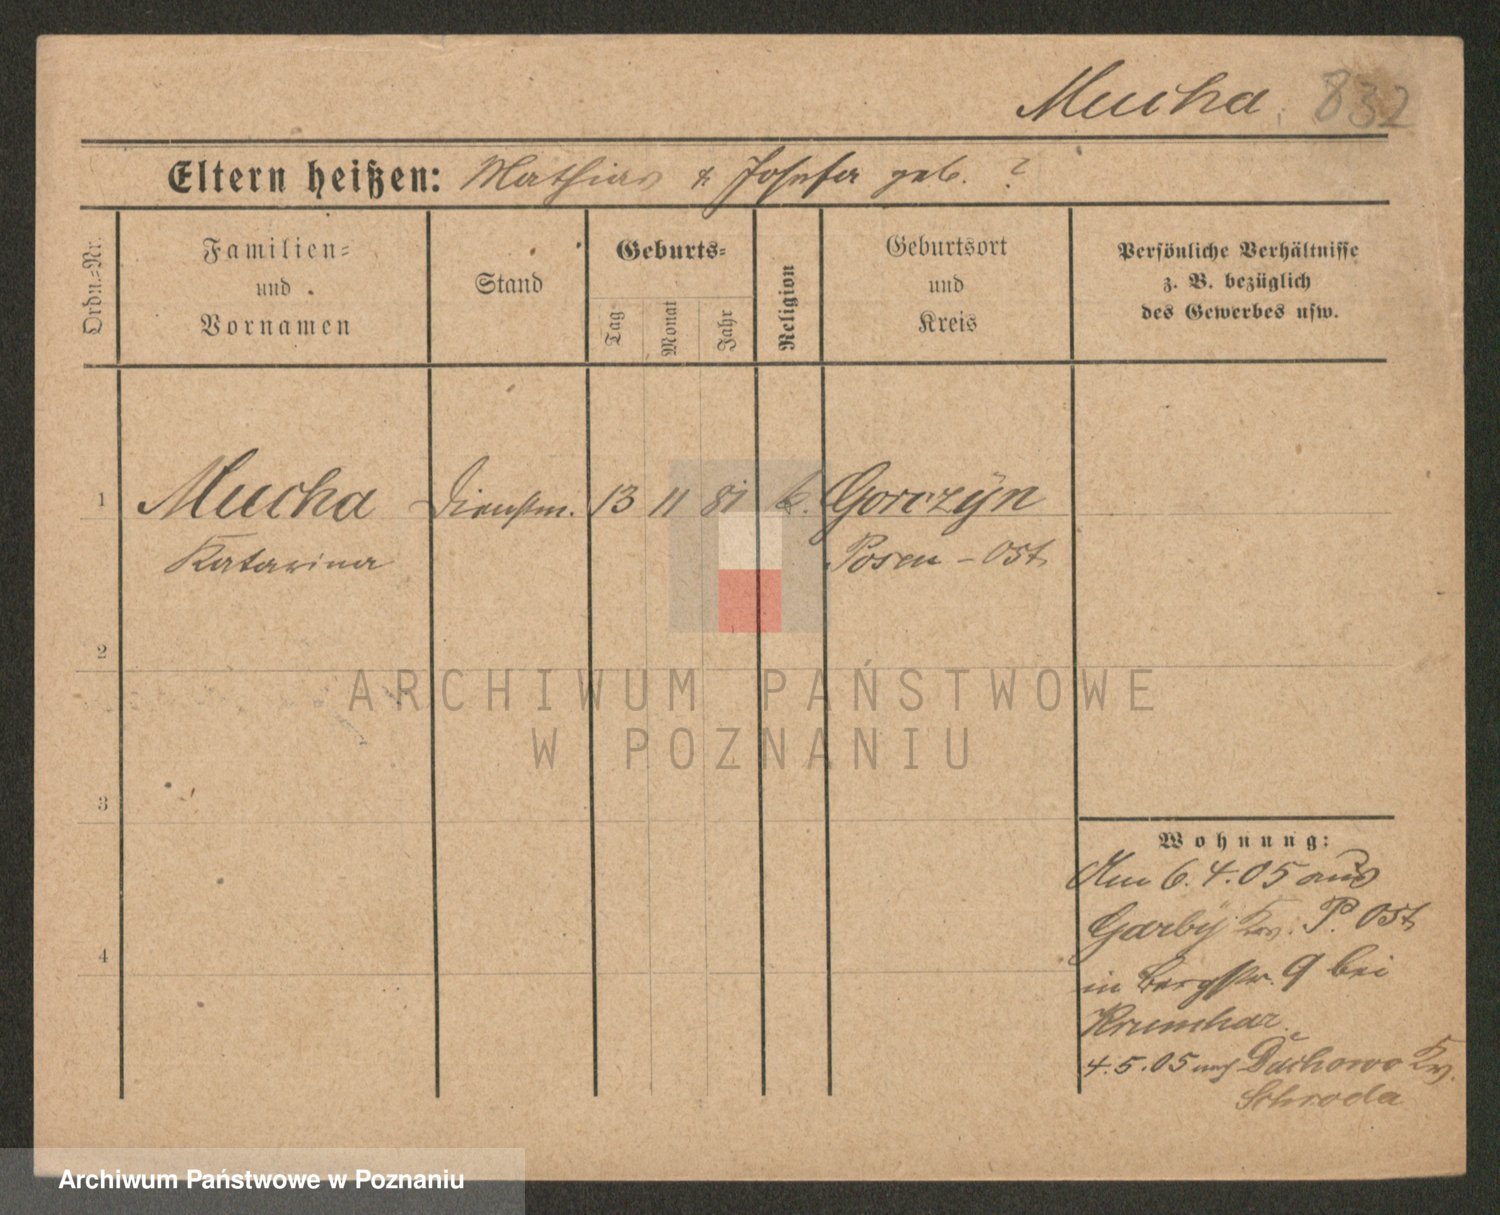 Mucha. 832
Eltern heißen: Mathias & Josefa geb. ?
Ordn.-Nr.
Familien-
und
Vornamen
Stand
Geburts-
Tag
Monat
Jahr
Religion
Geburtsort
und
Kreis
Persönliche Verhältnisse
z. B. bezüglich
des Gewerbes usw.
1 Mucha Dienstm. 13 11 81 k. Gorczyn
Katarina Posen - Ost
2
ARCHIWUM PAŃSTWOWE
W POZNANIU
3
Wohnung:
Am 6.4.05 aus
Garby Kr. P. Ost
4
in Bergstr. 9 bei
Krumhar
4.5.05 nach Dachowo Kr.
Schroda
Archiwum Państwowe w Poznaniu